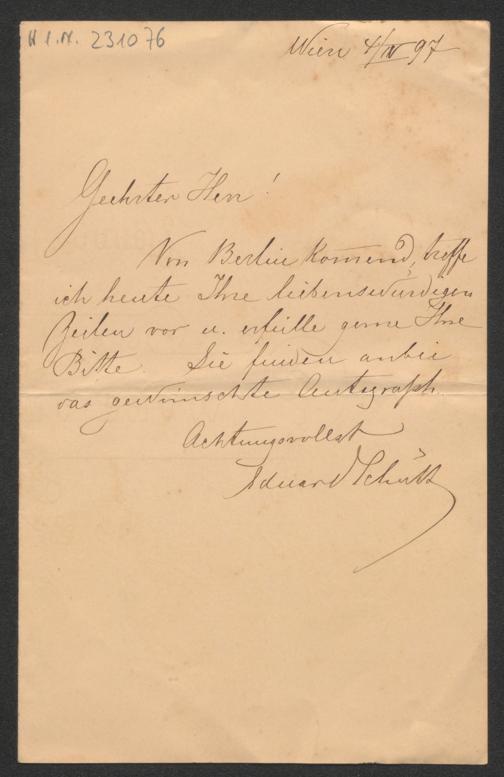 H.I.N. 231076
Wien 4/IV 97
Geehrter Herr!
Von Berlin kommend, treffe
ich heute Ihre liebenswürdigen
Zeilen vor u. erfülle gerne Ihre
Bitte. Sie finden anbei
das gewünschte Autograph.
Achtungsvollst
Eduard Schütt